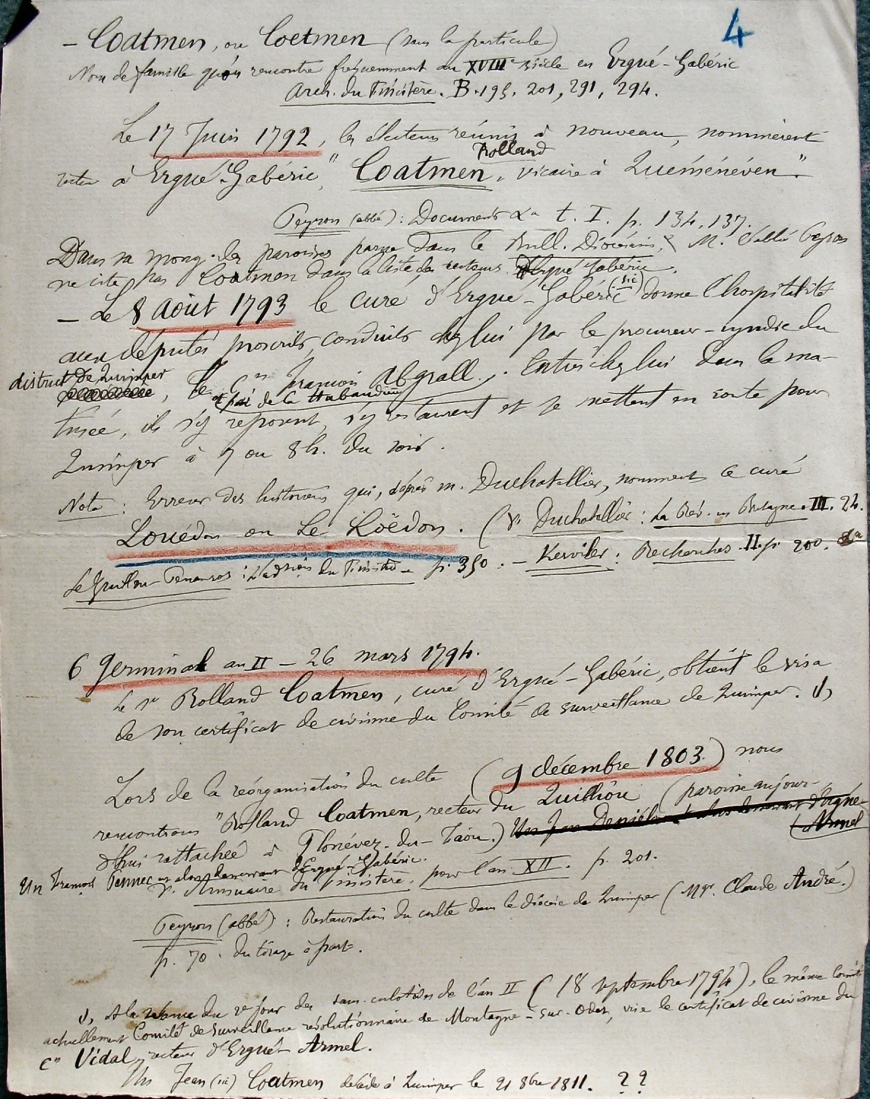 4
– Coatmen, ou Coetmen (sans la particule)
Nom de famille qu'on rencontre fréquemment au XVIIIe siècle en Ergué-Gabéric
Arch. du Finistère. B. 195, 201, 291, 294.
Le 17 Juin 1792, les électeurs réunis à nouveau, nommèrent
Rolland
recteur à Ergué-Gabéric, "Coatmen, vicaire à Queménéven".
Peyron (abbé) : Documents &a t. I. p. 134, 137.
Dans sa monog. des paroisses parue dans le Bull. Diocésain, M. l'abbé Peyron
ne cite pas Coatmen dans la liste des recteurs d'Ergué-Gabéric.
– Le 8 Août 1793 le curé d'Ergué-Gabéric (sic) donne l'hospitalité
aux députés proscrits conduits chez lui par le procureur-syndic du
district de Quimper, le Cen François Abgrall. Entrés chez lui dans la ma-
tinée, ils s'y reposent, s'y restaurent et se mettent en route pour
Quimper à 7 ou 8h. du soir.
Nota : Erreur des historiens qui, d'après M. Duchatellier, nomment ce curé
Louédon ou Le Loëdon. (V. Duchatellier : La Rév. en Bretagne. III. 24.
Le Guillou Penanros : L'admon du Finistère p. 350. – Kerviler : Recherches II. p. 200. &a
6 Germinal an II – 26 mars 1794.
Le sr Rolland Coatmen, curé d'Ergué-Gabéric, obtient le visa
de son certificat de civisme du Comité de surveillance de Quimper. 1)
Lors de la réorganisation du culte (9 décembre 1803.) nous
rencontrons "Rolland Coatmen, recteur du Quilliou (paroisse aujour-
d'hui rattachée à Plonévez-du-Faou.)
Un François Pennec est alors desservant d'Ergué-Gabéric.
V. Annuaire du Finistère, pour l'an XII. p. 201.
Peyron (abbé) : Restauration du culte dans le diocèse de Quimper (Mgr. Claude André.)
p. 70. du tirage à part.
1) A la séance du 2e jour des sans-culotides de l'an II (18 septembre 1794), le même Comité
actuellement Comité de surveillance révolutionnaire de Montagne-sur-Odet, vise le certificat de civisme du
Cen Vidal, recteur d'Ergué-Armel.
Un Jean (sic) Coatmen décédé à Quimper le 21 8bre 1811. ??